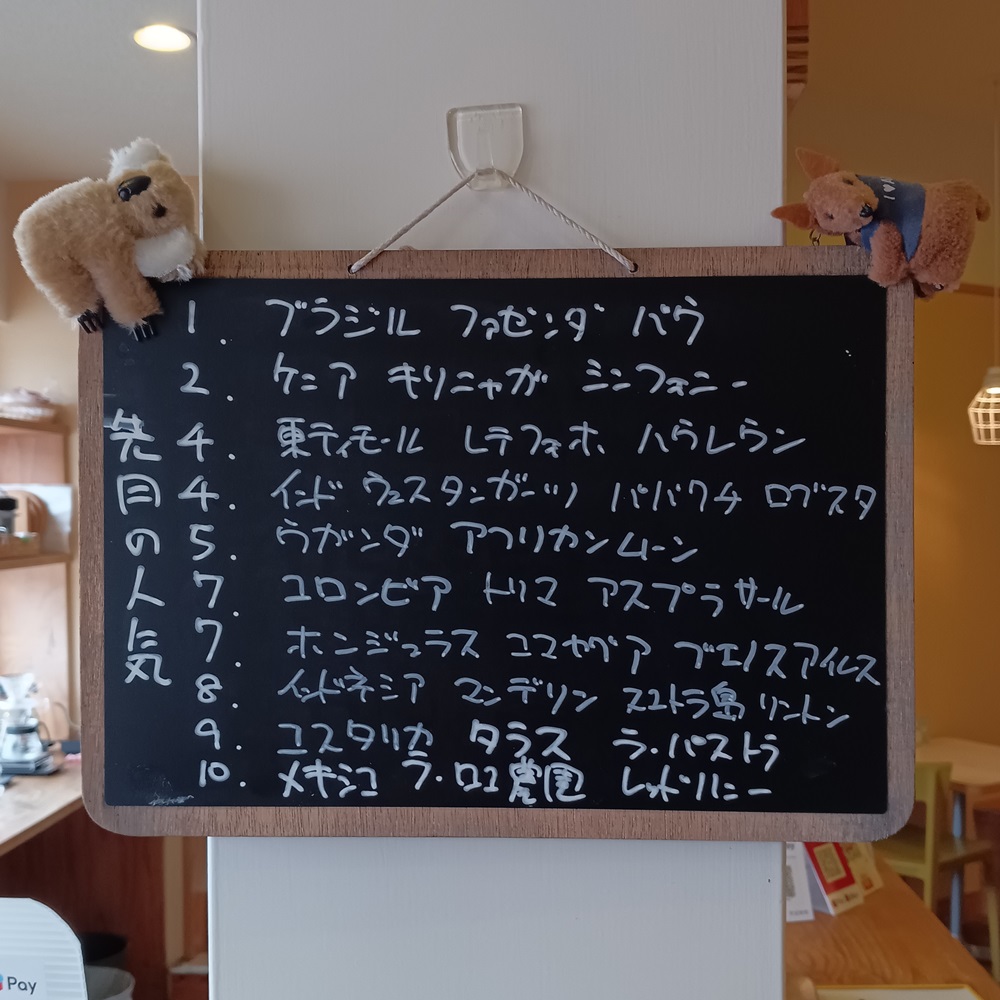 先月の人気
1. ブラジル ファゼンダ バウ
2. ケニア キリニャガ シンフォニー
4. 東ティモール レテフォホ ハウレウン
4. インド ウェスタンガーツ ババクチ ロブスタ
5. ウガンダ アフリカンムーン
7. コロンビア トリマ アスプラサール
7. ホンジュラス コマヤグア ブエノスアイレス
8. インドネシア マンデリン スマトラ島 リントン
9. コスタリカ タラス ラ・パストラ
10. メキシコ ラ・ロコ農園 レッドハニー
I ♥
Pay